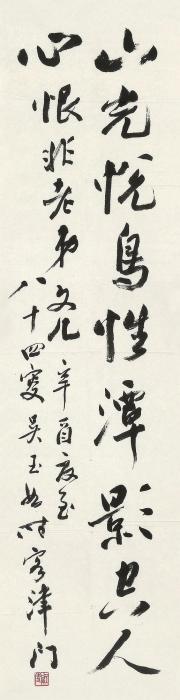 山光悦鳥性潭影空人
心恨非老弟文几 辛酉夏至
八十四叟吴玉如時客津門